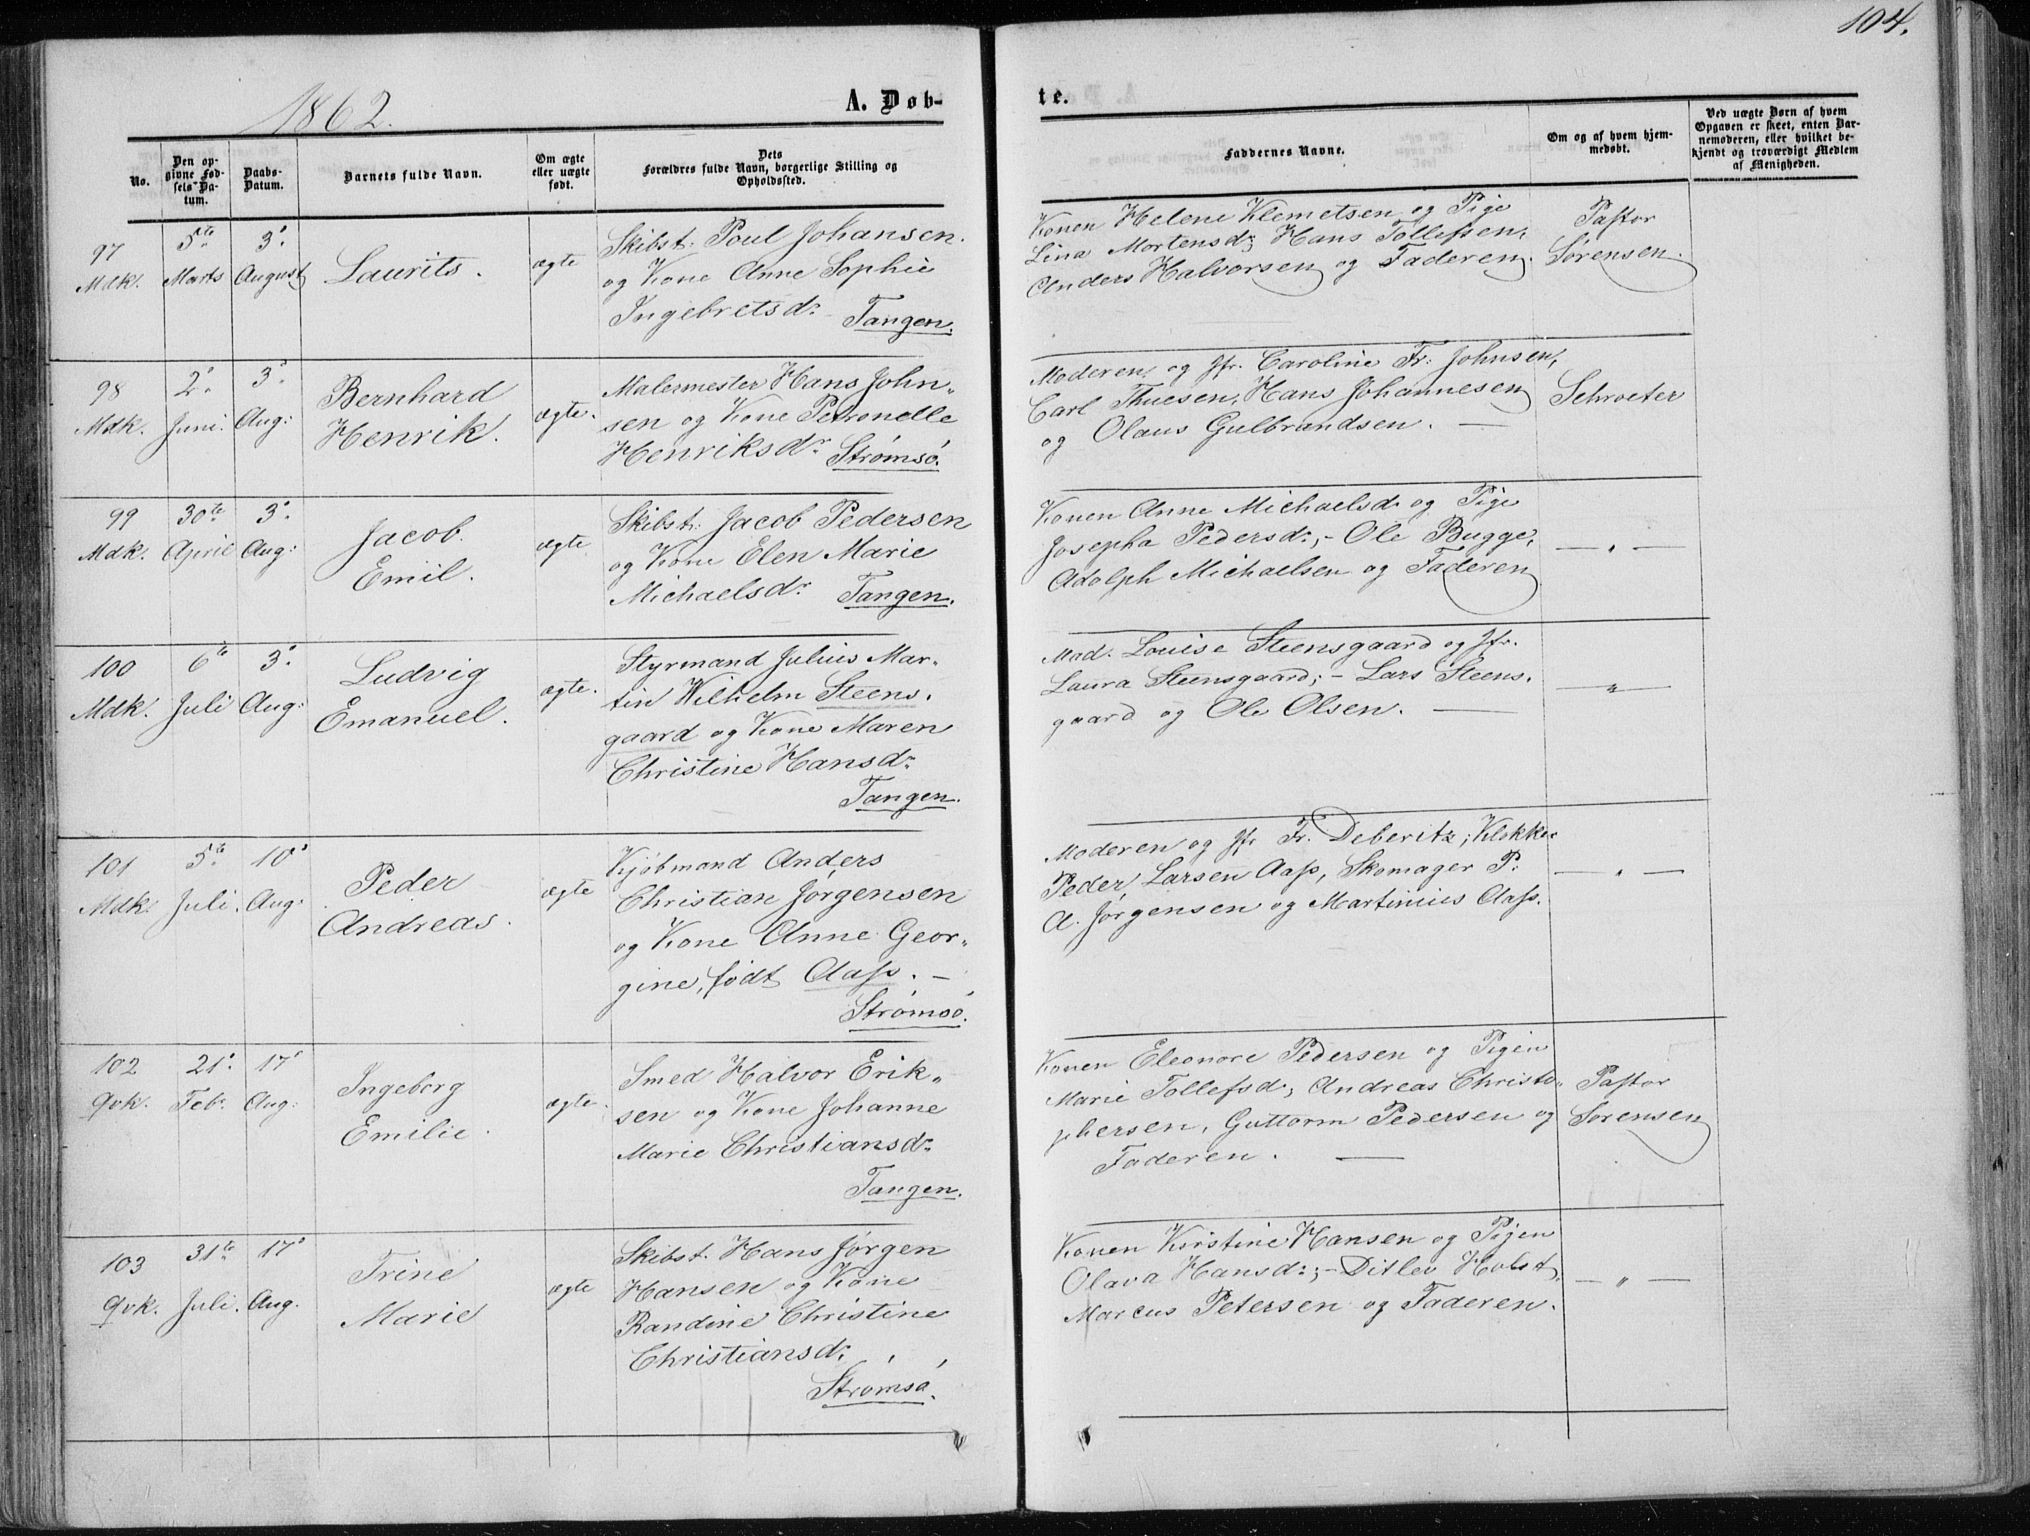 104.
1862.
A. Døb-
te.
No.
Den op-
givne Fød-
sels Da-
tum.
Daabs-
Datum.
Barnets fulde Navn.
Om ægte
eller uægte
født.
Dets
Forældres fulde Navn, borgerlige Stilling og
Opholdssted.
Faddernes Navne.
Om og af hvem hjem-
medøbt.
Ved uægte Børn af hvem
Opgaven er skeet, enten Bar-
nemoderen, eller hvilket be-
kjendt og troværdigt Medlem
af Menigheden.
97
Mdk.
5te
Marts
3.
August
Laurits.
ægte
Skibst. Poul Johansen.
og Kone Anne Sophie
Ingebretsdr.
Tangen.
Konen Helene Klemetsen og Pige
Lina Mortensd; Hans Tollefsen,
Anders Halvorsen og Faderen.
Pastor
Sørensen.
98
Mdk.
2.
Juni.
3.
Aug:
Bernhard
Henrik.
ægte.
Malermester Hans John-
sen og Kone Petronelle
Henriksdr Strømsø.
Moderen og Jfr. Caroline Fr. Johnsen,
Carl Thuesen, Hans Johannesen
og Olaus Gulbrandsen. —
Schroeter
99
Mdk.
30te
April
3.
Aug:
Jacob
Emil.
ægte
Skibst. Jacob Pedersen
og Kone Elen Marie
Michaelsdr Tangen.
Konen Anne Michaelsd. og Pige
Josepha Pedersd:, - Ole Bugge,
Adolph Michaelsen og Faderen
— " —
100
Mdk.
6te
Juli
3.
Aug:
Ludvig
Emanuel.
ægte.
Styrmand Julius Mar-
tin Wilhelm Steens-
gaard og Kone Maren
Christine Hansdr.
Tangen.
Mad. Louise Steensgaard og Jfr.
Laura Steensgaard; - Lars Steens-
gaard og Ole Olsen. —
— " —
101
Mdk.
5te
Juli.
10.
Aug:
Peder
Andreas.
ægte
Kjøbmand Anders
Christian Jørgensen
og Kone Anne Geor-
gine, født Aass. —
Strømsø.
Moderen og Jfr Fr. Deberitz; Klokker
Peder Larsen Aass, Skomager P.
A. Jørgensen og Martinius Aass.
— " —
102
Qvk.
21.
Febr.
17.
Aug:
Ingeborg
Emilie.
ægte.
Smed Halvor Erik-
sen og Kone Johanne
Marie Christiansdr.
Tangen.
Konen Eleonore Pedersen og Pigen
Marie Tollefsd; Andreas Christo-
phersen, Guttorm Pedersen og
Faderen. —
Pastor
Sørensen
103
Qvk.
31te
Juli.
17.
Aug.
Trine
Marie
ægte
Skibst. Hans Jørgen
Hansen og Kone
Randine Christine
Christiansd.
Strømsø.
Konen Kirstine Hansen og Pigen
Olava Hansd:; - Ditlev Holst,
Marcus Petersen og Faderen.
— " —